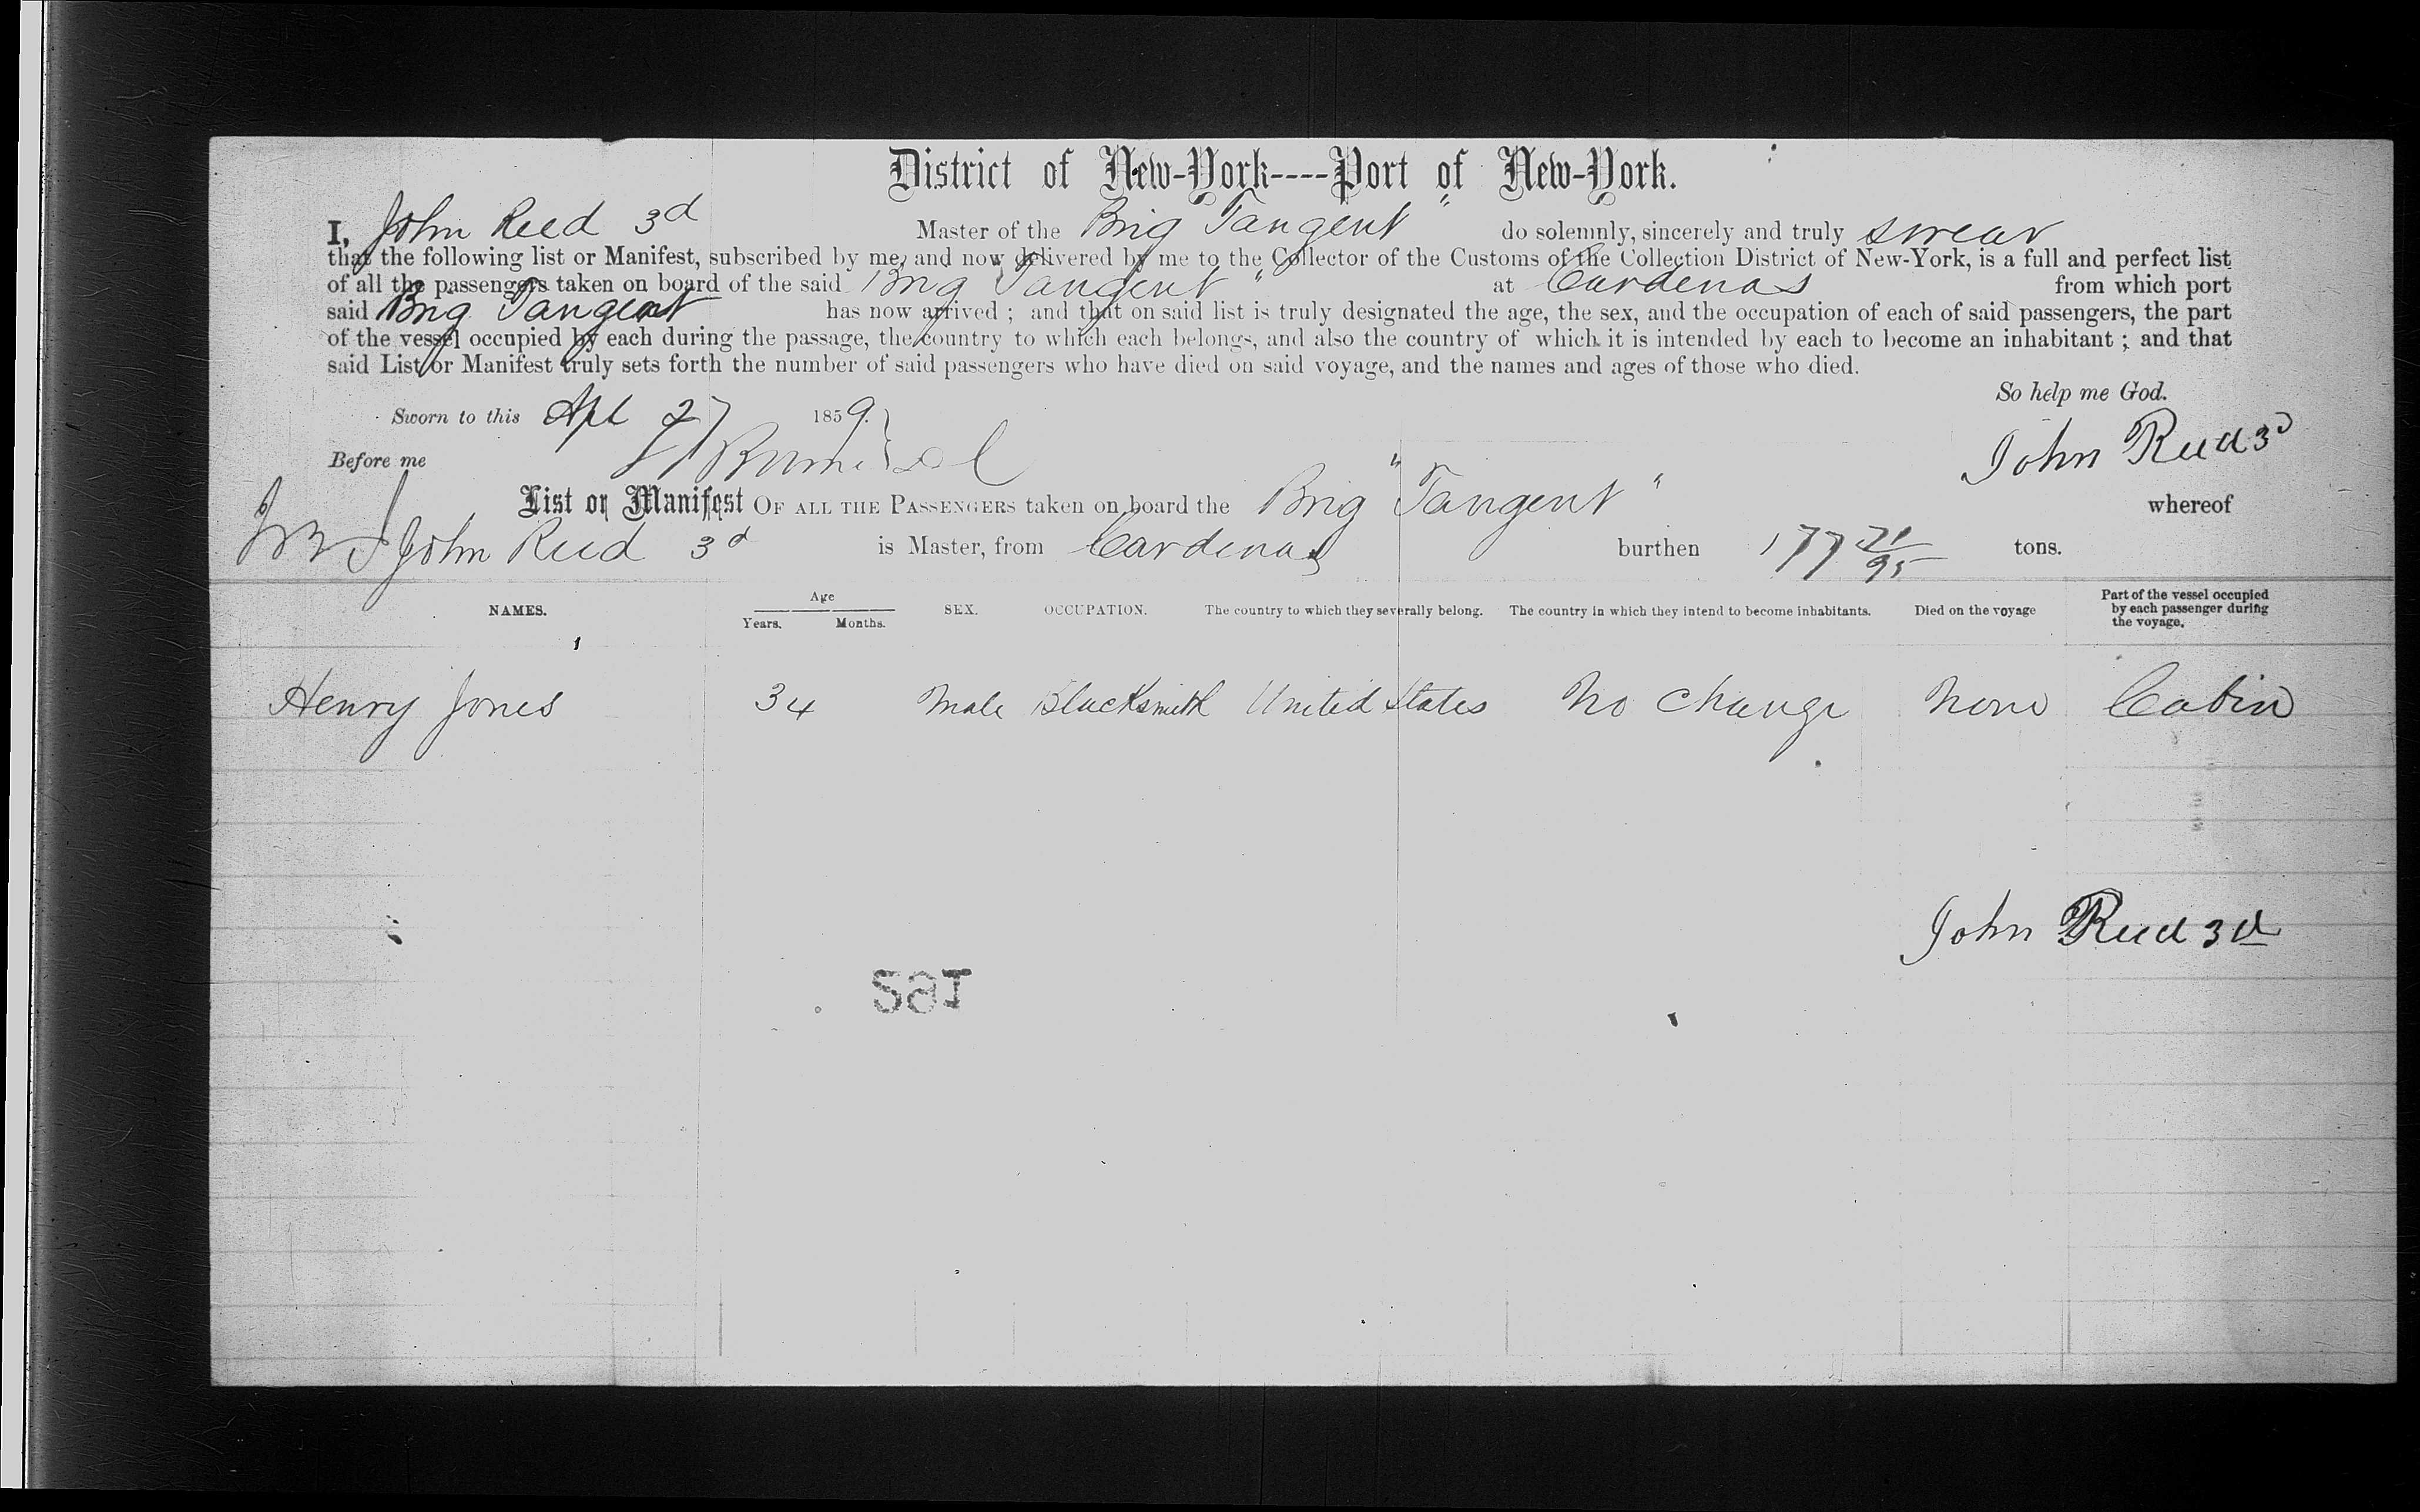 District of New-York----Port of New-York.
I, John Reed 3d Master of the Brig Tangent" do solemnly, sincerely and truly swear
that the following list or Manifest, subscribed by me, and now delivered by me to the Collector of the Customs of the Collection District of New-York, is a full and perfect list
of all the passengers taken on board of the said Brig Tangent" at Cardenas from which port
said Brig Tangent has now arrived ; and that on said list is truly designated the age, the sex, and the occupation of each of said passengers, the part
of the vessel occupied by each during the passage, the country to which each belongs, and also the country of which it is intended by each to become an inhabitant ; and that
said List or Manifest truly sets forth the number of said passengers who have died on said voyage, and the names and ages of those who died.
So help me God.
Sworn to this Apl 27 1859.
John Reed 3d
Before me
List or Manifest OF ALL THE PASSENGERS taken on board the Brig "Tangent" whereof
John Reed 3d is Master, from Cardenas burthen 177 71/95 tons.
NAMES. Age Years. Months. SEX. OCCUPATION. The country to which they severally belong. The country in which they intend to become inhabitants. Died on the voyage Part of the vessel occupied by each passenger during the voyage.
Henry Jones 34 Male Blacksmith United States No Change None Cabin
John Reed 3d